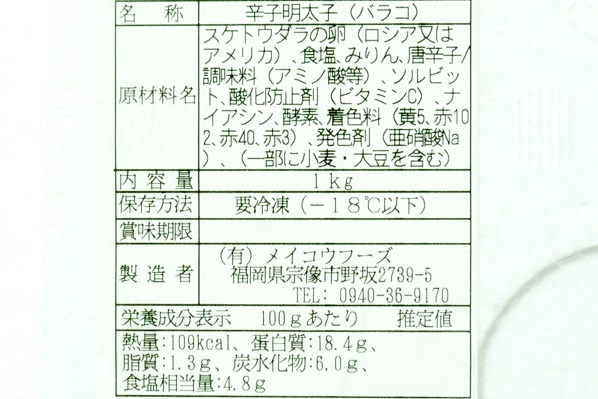 名 称 辛子明太子（バラコ）
原材料名 スケトウダラの卵（ロシア又は
アメリカ）、食塩、みりん、唐辛子/
調味料（アミノ酸等）、ソルビッ
ト、酸化防止剤（ビタミンC）、ナ
イアシン、酵素、着色料（黄5、赤10
2、赤40、赤3）、発色剤（亜硝酸Na
）、（一部に小麦・大豆を含む）
内容量 1kg
保存方法 要冷凍（－18℃以下）
賞味期限
製造者 （有）メイコウフーズ
福岡県宗像市野坂2739-5
TEL: 0940-36-9170
栄養成分表示 100gあたり 推定値
熱量:109kcal、蛋白質:18.4g、
脂質:1.3g、炭水化物:6.0g、
食塩相当量:4.8g